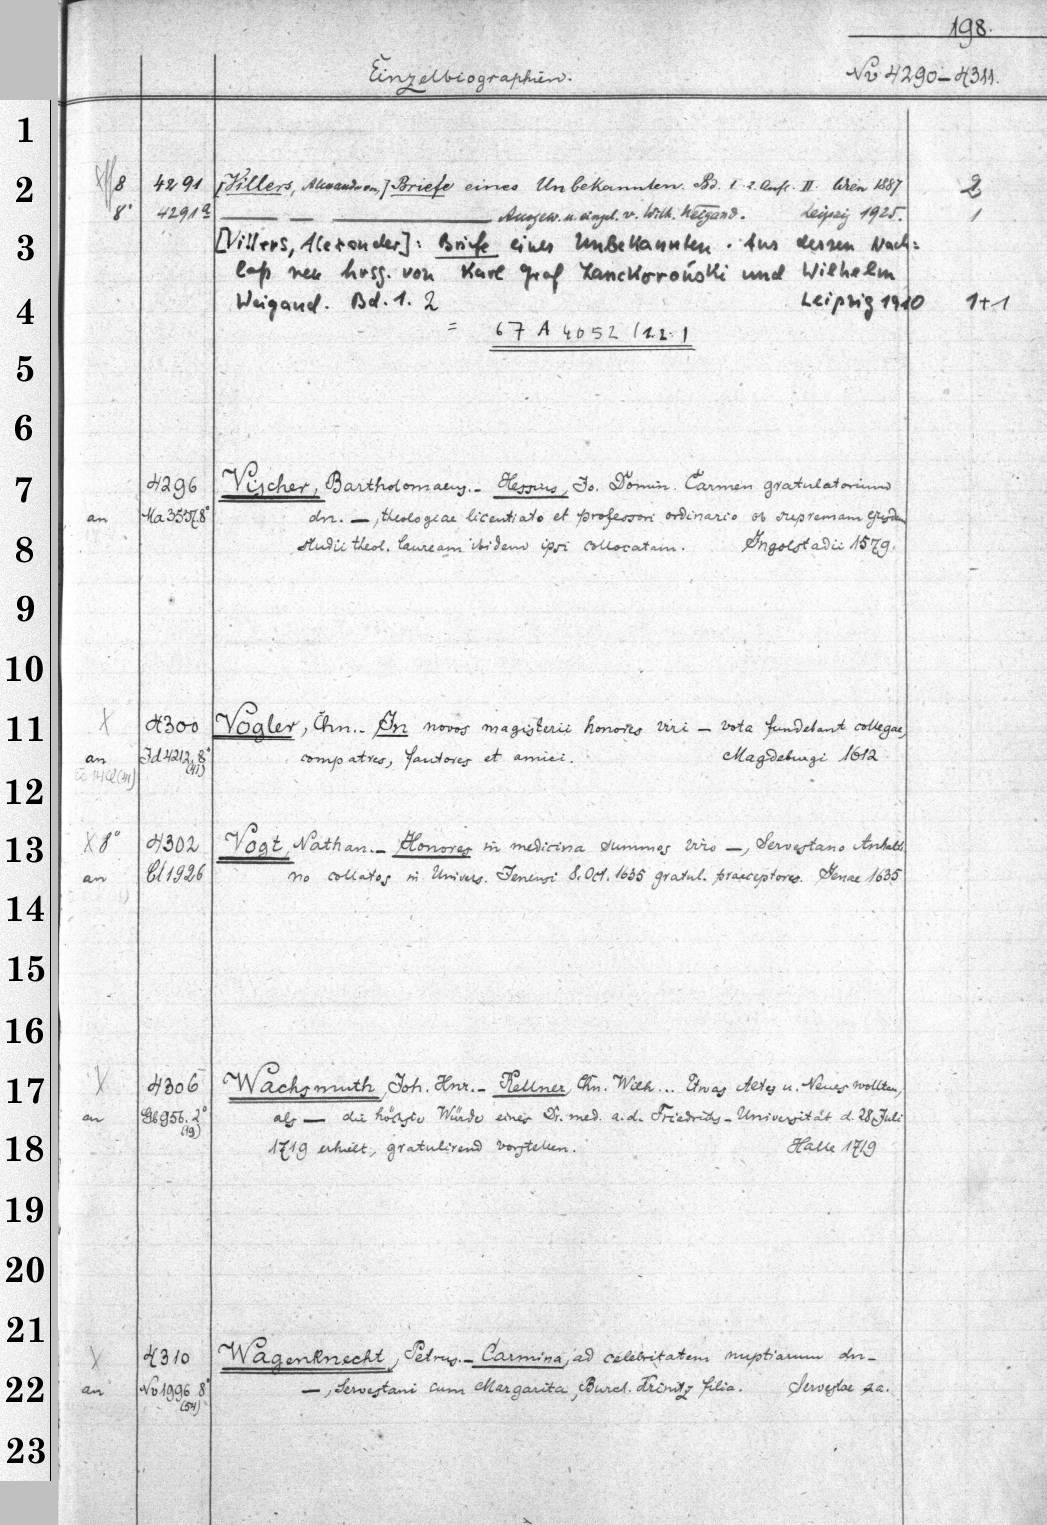 198.
Einzelbiographien. Nv 4290–4311.
1
2 8 4291 [Villers, Alexander von,] Briefe eines Unbekannten. Bd. I. 2. Aufl. II. Wien 1887 2
8° 4291a — — — Ausgew. u. eingel. v. Wilh. Weigand. Leipzig 1925. 1
3 [Villers, Alexander]: Briefe eines Unbekannten. Aus dessen Nach=
laß neu hrsg. von Karl Graf Lanckoroński und Wilhelm
4 Weigand. Bd. 1. 2 Leipzig 1910 1+1
= 67 A 4052 (1.2.)
5
6
7 4296 Vischer, Bartholomaeus. – Hessius, Jo. Domin. Carmen gratulatorium
an Ma 3557 8° dn. —, theologiae licentiato et professori ordinario ob supremam ejusdem
8 studii theol. lauream ibidem ipsi collocatam. Ingolstadii 1579.
9
10
11 X 4300 Vogler, Chn. – In novos magisterii honores viri — vota fundebant collegae,
an Jd 4212, 8° (41) compatres, fautores et amici. Magdeburgi 1612
12
13 X 8° 4302 Vogt, Nathan. – Honores in medicina summos viro —, Servestano Anhalti
an Cl 1926 no collatos in Univers. Jenensi 8. Oct. 1635 gratul. praeceptores. Jenae 1635
14
15
16
17 X 4306 Wachsmuth, Joh. Hnr. – Kellner, Chn. Wilh... Etwas Altes u. Neues wollten,
an Gb 956. 2° (19) als — die höchste Würde eines Dr. med. a. d. Friedrichs-Universität d. 28 Juli
18 1719 erhielt, gratulirend vorstellen. Halle 1719
19
20
21
X 4310 Wagenknecht, Petrus. – Carmina, ad celebritatem nuptiarum dn–
22 an Nv 1996 8° (54) —, Servestani cum Margarita, Burch. Trintz filia. Servestae s.a.
23